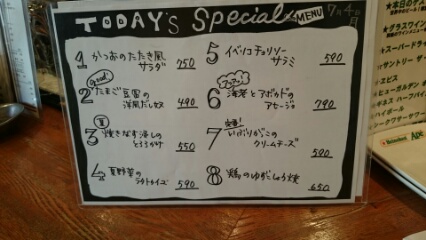 TODAY's Special MENU 7月4日
1 かつおのたたき風
サラダ 750
Good!
2 たまご豆腐の
洋風だし奴 490
3 焼きなす浸しの
とろろがけ 550
4 夏野菜の
ラタトゥイユ 590
5 イベリコチョリソー
サラミ 590
6 海老とアボカドの
アヒージョ 790
定番!
7 いぶりがっこの
クリームチーズ 590
8 鶏のゆずこしょう焼 650
本日の
グラスワイン
スーパードラ
サントリー ザ
エビス
ヒューガルデン
ギネス ハーフパイ
ハイネケン
シークワーサワー
Heineken